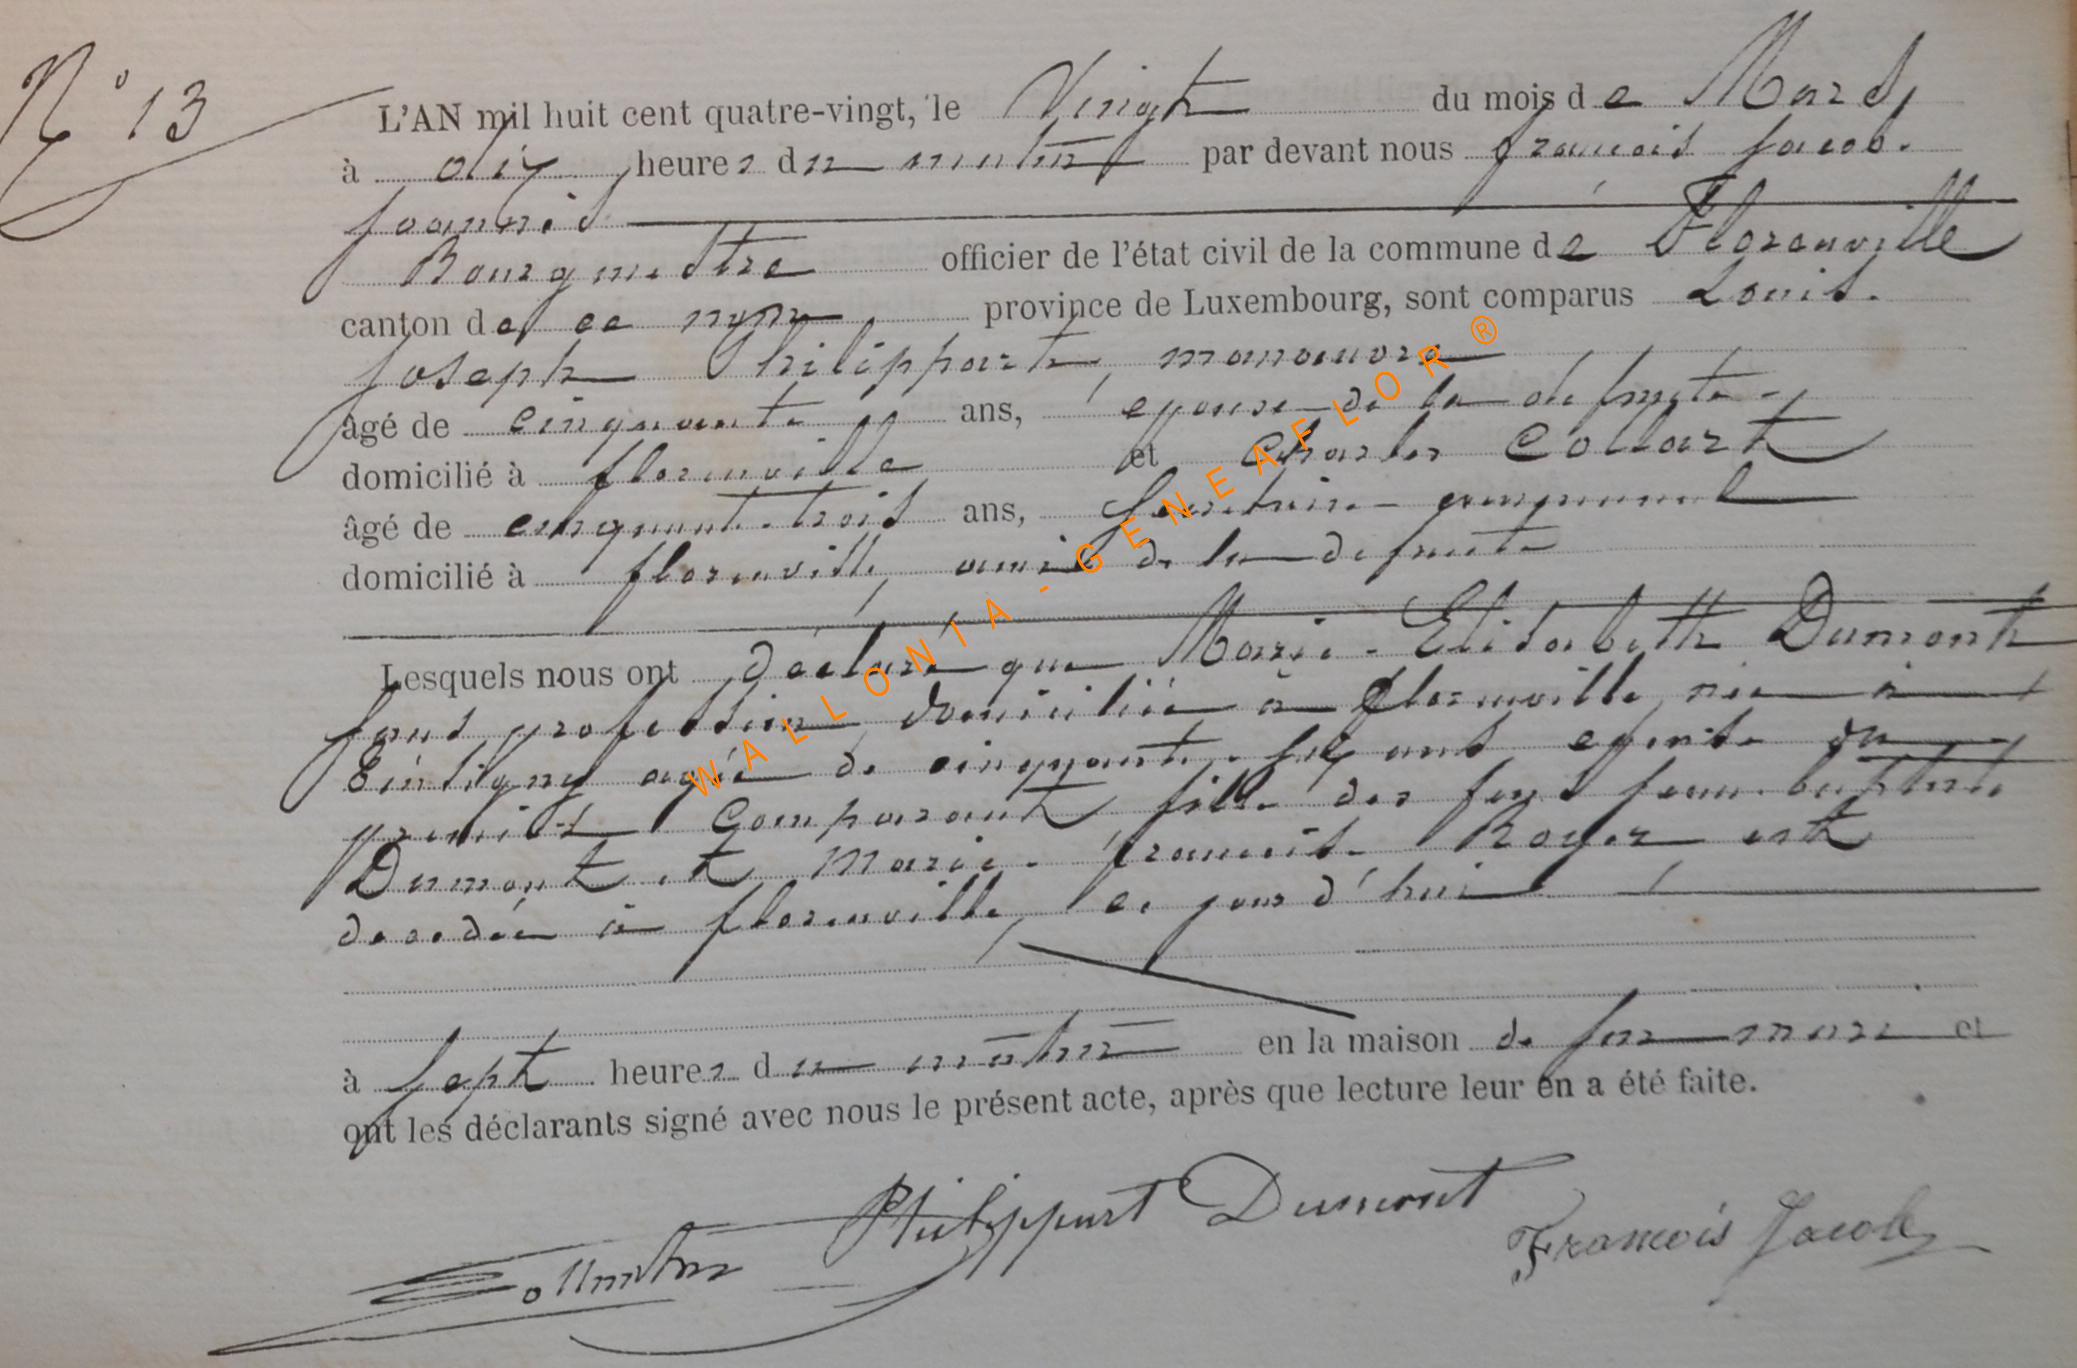 N° 13
L'AN mil huit cent quatre-vingt, le Vingt du mois de Mars,
à dix heures du matin par devant nous françois Jacob.
Joannis
Bourgmestre officier de l'état civil de la commune de Florenville
canton de ce nom province de Luxembourg, sont comparus Louis.
Joseph Philippart, manoeuvre
âgé de cinquante ans, epoux de la defunte
domicilié à florenville et Charles Collart
âgé de cinquante-trois ans, Secretaire communal
domicilié à florenville, ami de la defunte
Lesquels nous ont déclaré que Marie-Elisabeth Dumont
sans profession domiciliée à florenville née à
Eintigny agée de cinquante-six ans epouse du
premier Comparant fille des feus Jean-baptiste
Dumont et Marie-françoise Roger est
decedée à florenville, ce jour d'hui
à sept heures du matin en la maison de son mari et
ont les déclarants signé avec nous le présent acte, après que lecture leur en a été faite.
Philippart Dumont
François Jacob
WALLONIA - GENEAFLOR ®